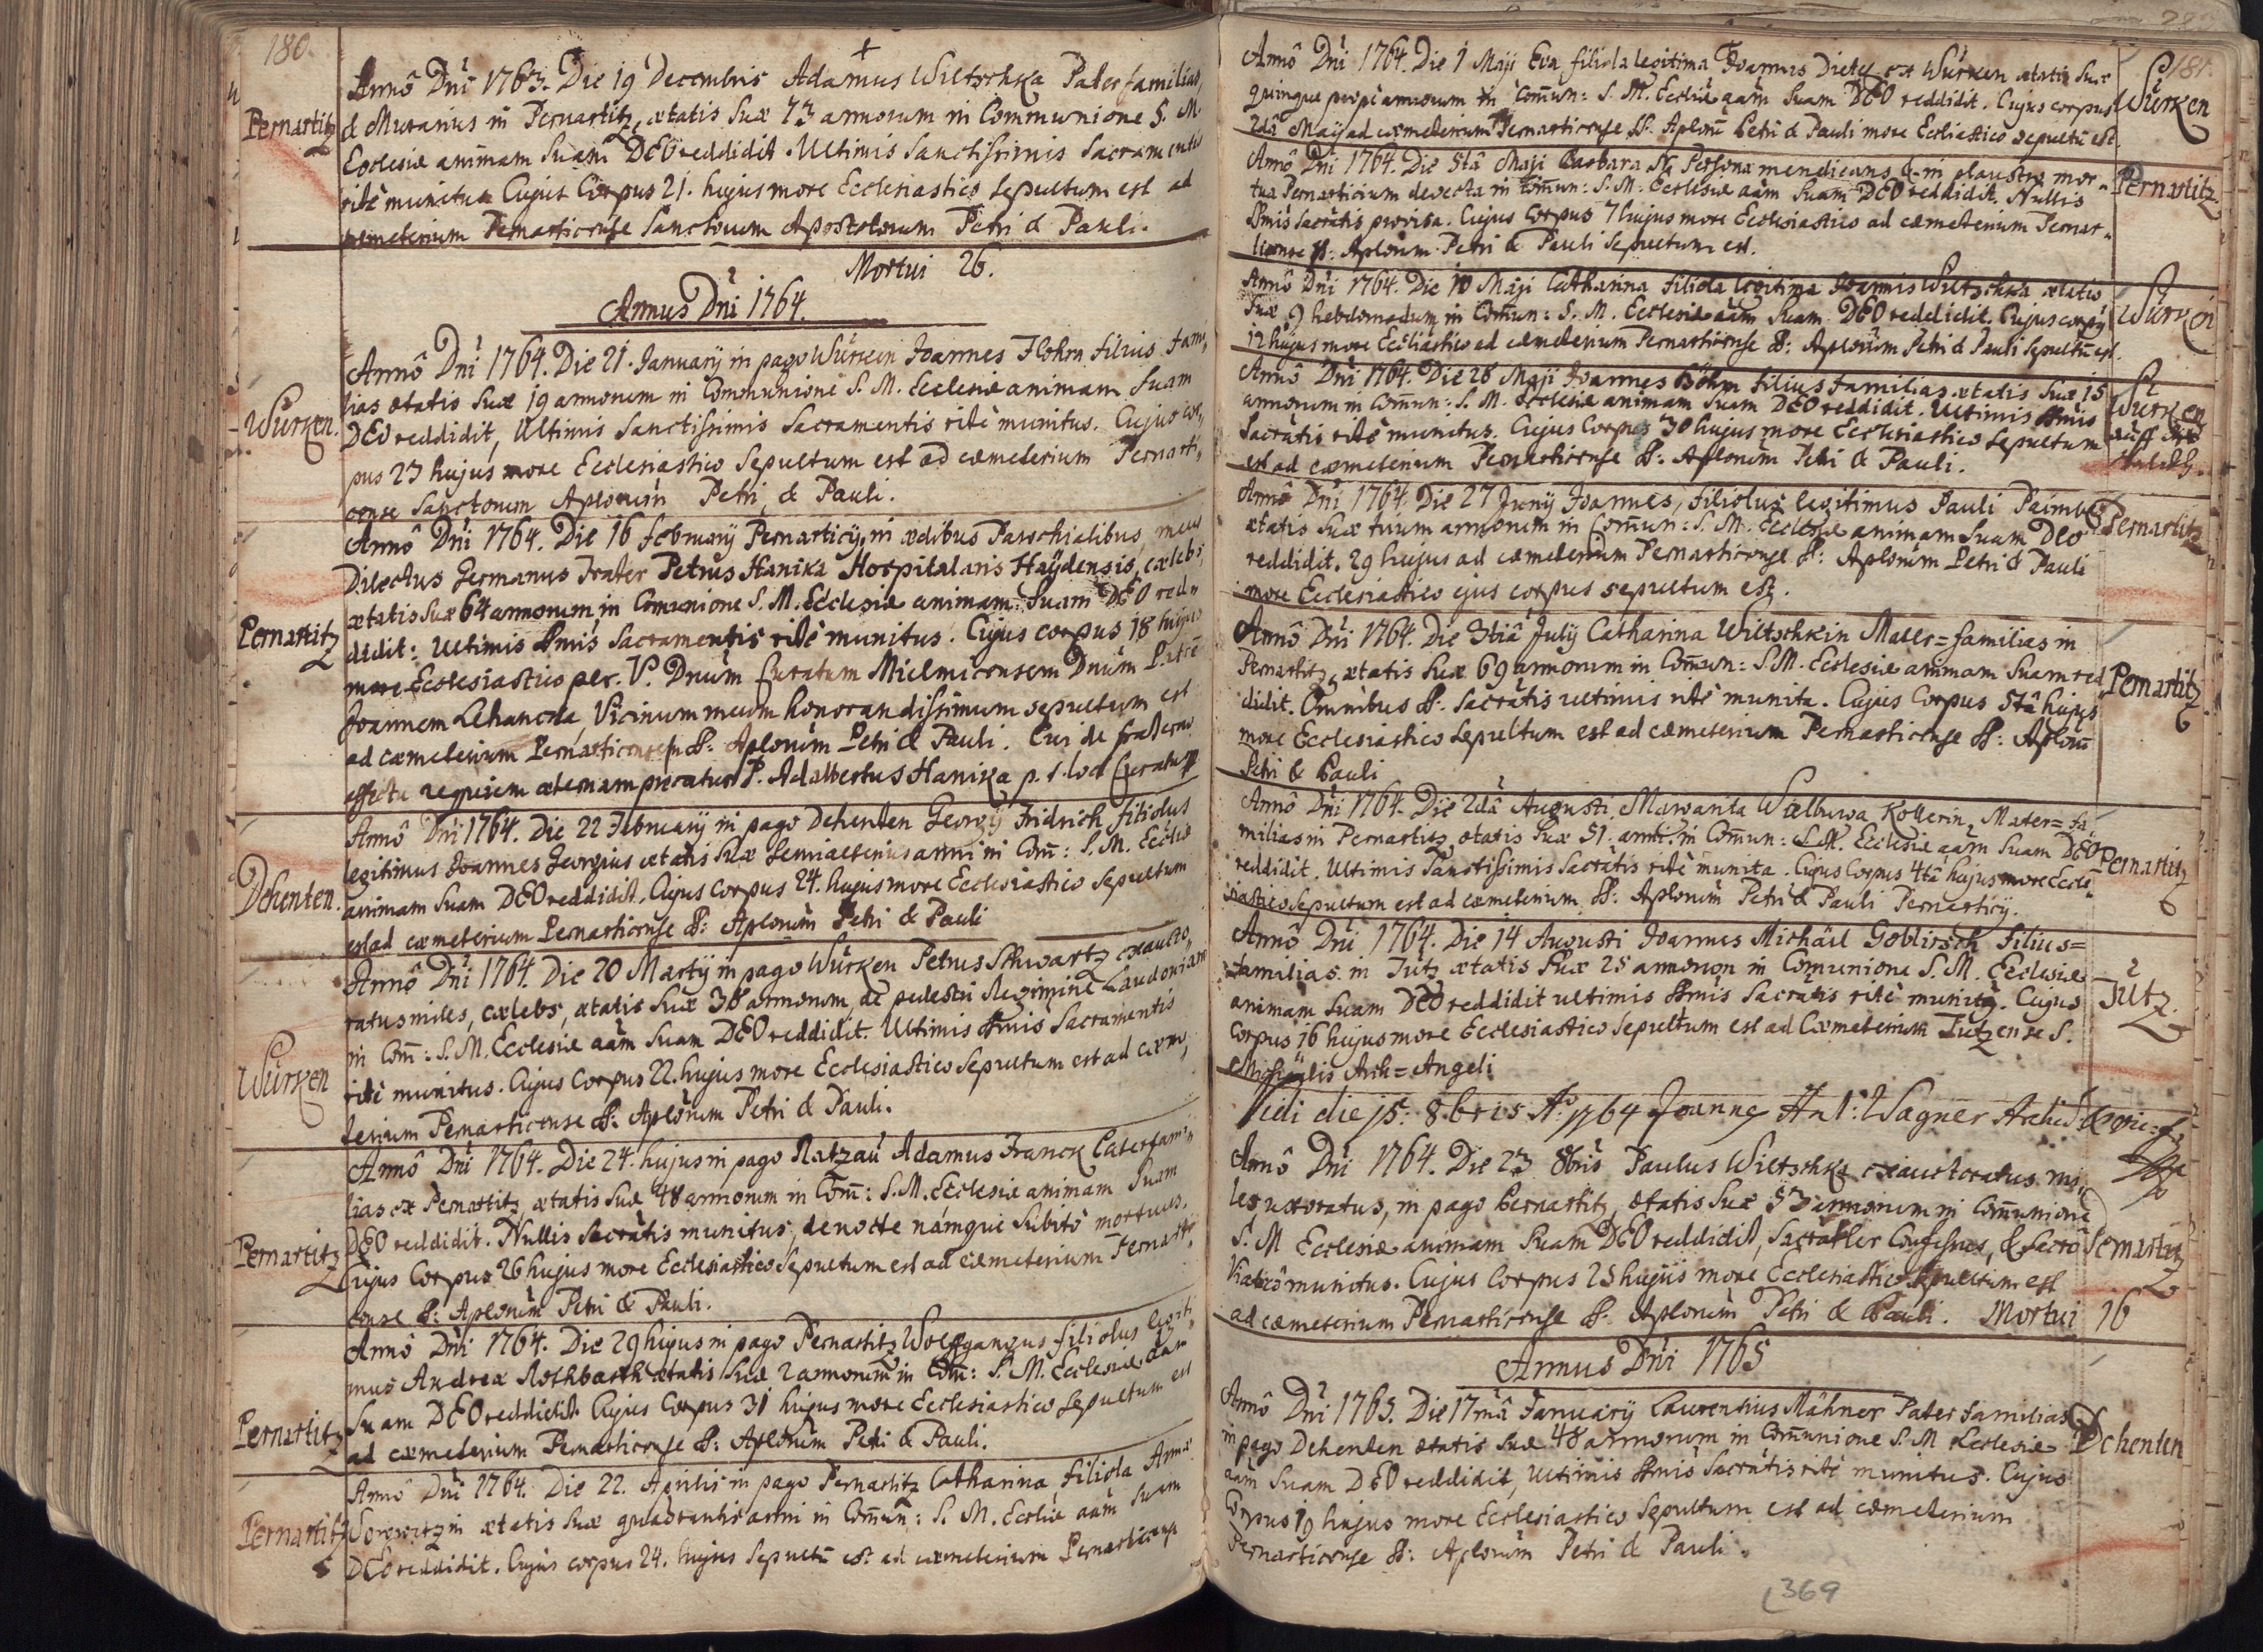 180.
Pernartitz
Annô Dni 1763. Die 19 Decembris Adamus Wiltschka Pater familias,
& Murarius in Pernartitz, ætatis suæ 73 annorum in Communione S. M.
Ecclesiæ animam suam DEO reddidit. Ultimis Sanctissimis Sacramentis
ritè munitus Cujus Corpus 21. hujus more Ecclesiastico sepultum est ad
cæmeterium Pernarticense Sanctorum Apostolorum Petri & Pauli.
Mortui 26.
Annus Dni 1764.
Würken.
Annô Dni 1764. Die 21. Januarij in pago Würken Joannes Flohrn filius fami„
lias ætatis suæ 19 annorum in Communione S. M. Ecclesiæ animam suam
DEO reddidit, Ultimis Sanctissimis Sacramentis ritè munitus. Cujus cor„
pus 23 hujus more Ecclesiastico sepultum est ad cæmeterium Pernarti„
cense Sanctorum Aplorum Petri & Pauli.
Pernartitz
Annô Dni 1764. Die 16 februarij Pernarticij, in ædibus Parochialibus, meus
Dilectus Germanus Frater Petrus Hanika Hospitalaris Haÿdensis, cælebs,
ætatis suæ 64 annorum, in Comunione S. M. Ecclesiæ animam suam DEO red„
didit: Ultimis SSmis Sacramentis ritè munitus. Cujus corpus 18 hujus
more Ecclesiastico per. V. Dnum Curatum Mielnicensem Dnum Patrē
Joannem Lehancka, Vicinum meum honorandissimum sepultum est
ad cæmeterium Pernarticense SS: Aplorum Petri & Pauli. Cui de fraterno
affectu requiem æternam precatur P. Adalbertus Hanika p. t. loci Curatus
Dehenten.
Annô Dni 1764. Die 22 Februarij in pago Dehenten Georgij Fridrich filiolus
legitimus Joannes Georgius ætatis suæ semialterius anni in Com̄: S. M. Eccliæ
animam suam DEO reddidit. Cujus corpus 24. hujus more Ecclesiastico sepultum
est ad cæmeterium Pernarticense SS: Aplorum Petri & Pauli
Würken
Annô Dni 1764. Die 20 Martij in pago Würken Petrus Schwartz exaucto„
ratus miles, cælebs, ætatis suæ 38 annorum, de pedestri Regimine Laudoniano
in Com̄: S. M. Ecclesiæ aam suam DEO reddidit. Ultimis SSmis Sacramentis
ritè munitus. Cujus Corpus 22. hujus more Ecclesiastico sepultum est ad cæme„
terium Pernarticense SS: Aplorum Petri & Pauli.
Pernartitz
Annô Dni 1764. Die 24. hujus in pago Ratzau Adamus Franck Paterfami„
lias ex Pernartitz, ætatis suæ 48 annorum in Com̄: S. M. Ecclesiæ animam suam
DEO reddidit. Nullis sacratis munitus, de nocte namque subitò mortuus.
Cujus Corpus 26 hujus more Ecclesiastico sepultum est ad cæmeterium Pernarti„
cense SS: Aplorum Petri & Pauli.
Pernartitz
Annô Dni 1764. Die 29 hujus in pago Pernartitz Wolffgangus filiolus legiti„
mus Andreæ Rothbarth ætatis suæ 2 annorum in Com̄: S. M. Ecclesiæ aam
suam DEO reddidit Cujus Corpus 31 hujus more Ecclesiastico sepultum est
ad cæmeterium Pernarticense SS: Aplorum Petri & Pauli.
Pernartitz
Annô Dni 1764. Die 22. Aprilis in pago Pernartitz Catharina, filiola Annæ
ætatis suæ quadrantis anni in Com̄un: S. M. Eccliæ aam suam
DEO reddidit. Cujus corpus 24. hujus sepultū est ad cæmeterium Pernarticense
181.
Annô Dni 1764. Die 1 Maji Eva filiola legitima Joannis Dietl ex Würken ætatis suæ
quinque propè annorum in Com̄un: S. M. Eccliæ aam suam DEO reddidit. Cujus corpus
2dâ Maij ad cæmeterium Pernarticense SS. Aplorū Petri & Pauli more Eccliastico sepultū est.
Würken
Annô Dni 1764. Die 5tâ Maji Barbara N. Persona mendicans & in plaustro mor„
tua Pernarticium devecta in Com̄un: S. M. Ecclesiæ aam suam DEO reddidit. Nullis
SSmis sacratis provisa. Cujus Corpus 7 hujus more Ecclesiastico ad cæmeterium Pernar„
ticense SS: Aplorum Petri & Pauli sepultum est.
Pernartitz.
Annô Dni 1764. Die 10 Maji Catharina filiola legitima Joannis Wiltschka ætatis
suæ 9 hebdomadum in Com̄un: S. M. Ecclesiæ aam suam DEO reddidit. Cujus corpus
12 hujus more Eccliastico ad cæmeterium Pernarticense SS: Aplorum Petri & Pauli sepultū est.
Würken
Annô Dni 1764. Die 28 Maji Joannes Böhm filius familias ætatis suæ 15
annorum in Com̄un: S. M. Ecclesiæ animam suam DEO reddidit. Ultimis SSmis
Sacratis ritè munitus. Cujus Corpus 30 hujus more Ecclesiastico sepultum
est ad cæmeterium Pernarticense SS: Aplorum Petri & Pauli.
Würken
auff der
Annô Dni 1764. Die 27 Junij Joannes, filiolus legitimus Pauli
ætatis suæ trium annorum in Com̄un: S. M. Ecclesiæ animam suam DEO
reddidit. 29 hujus ad cæmeterium Pernarticense SS: Aplorum Petri & Pauli
more Ecclesiastico ejus corpus sepultum est.
Pernartitz
Annô Dni 1764. Die 3tiâ Julij Catharina Wiltschkin Mater=familias in
Pernartitz, ætatis suæ 69 annorum in Com̄un: S. M. Ecclesiæ animam suam red„
didit. Omnibus SS. Sacratis ultimis ritè munita. Cujus Corpus 5tâ hujus
more Ecclesiastico sepultum est ad cæmeterium Pernarticense SS: Aplorū
Petri & Pauli
Pernartitz
Annô Dni 1764. Die 2dâ Augusti Margarita Walburga Kollerin, Mater=fa„
milias in Pernartitz, ætatis suæ 51. anno. in Com̄un: S. M. Ecclesiæ aam suam DEO
reddidit. Ultimis Sanctissimis Sacratis ritè munita. Cujus Corpus 4tâ hujus more Eccle„
siastico sepultum est ad cæmeterium SS: Aplorum Petri & Pauli Pernarticij.
Pernartitz
Annô Dni 1764. Die 14 Augusti Joannes Michäel Goblirsch filius=
familias in Jütz ætatis suæ 25 annorum in Comunione S. M. Ecclesiæ
animam suam DEO reddidit ultimis SSmis Sacratis ritè munitus. Cujus
Corpus 16 hujus more Ecclesiastico sepultum est ad Cæmeterium Jützense S.
Michäelis Arch=Angeli
Jütz.
Vidi die 15: 8bris Ao. 1764 Joannes Ant: Wagner
Annô Dni 1764. Die 23 8bris Paulus Wiltschka exauctoratus mi„
les uxoratus, in pago Pernartitz, ætatis suæ 53 annorum in Com̄unione
S. M Ecclesiæ animam suam DEO reddidit, Sacratler Confessus, & sacro
Viatico munitus. Cujus Corpus 25 hujus more Ecclesiastico sepultum est
ad cæmeterium Pernarticense SS. Aplorum Petri & Pauli. Mortui 16
Pernartitz
Annus Dni 1765
Annô Dni 1765. Die 17mâ Januarij Laurentius Mähner Pater familias
in pago Dehenten ætatis suæ 48 annorum in Com̄unione S. M Ecclesiæ
aam suam DEO reddidit, Ultimis SSmis Sacratis ritè munitus. Cujus
Corpus 19 hujus more Ecclesiastico sepultum est ad cæmeterium
Pernarticense SS: Aplorum Petri & Pauli.
Dehenten
369